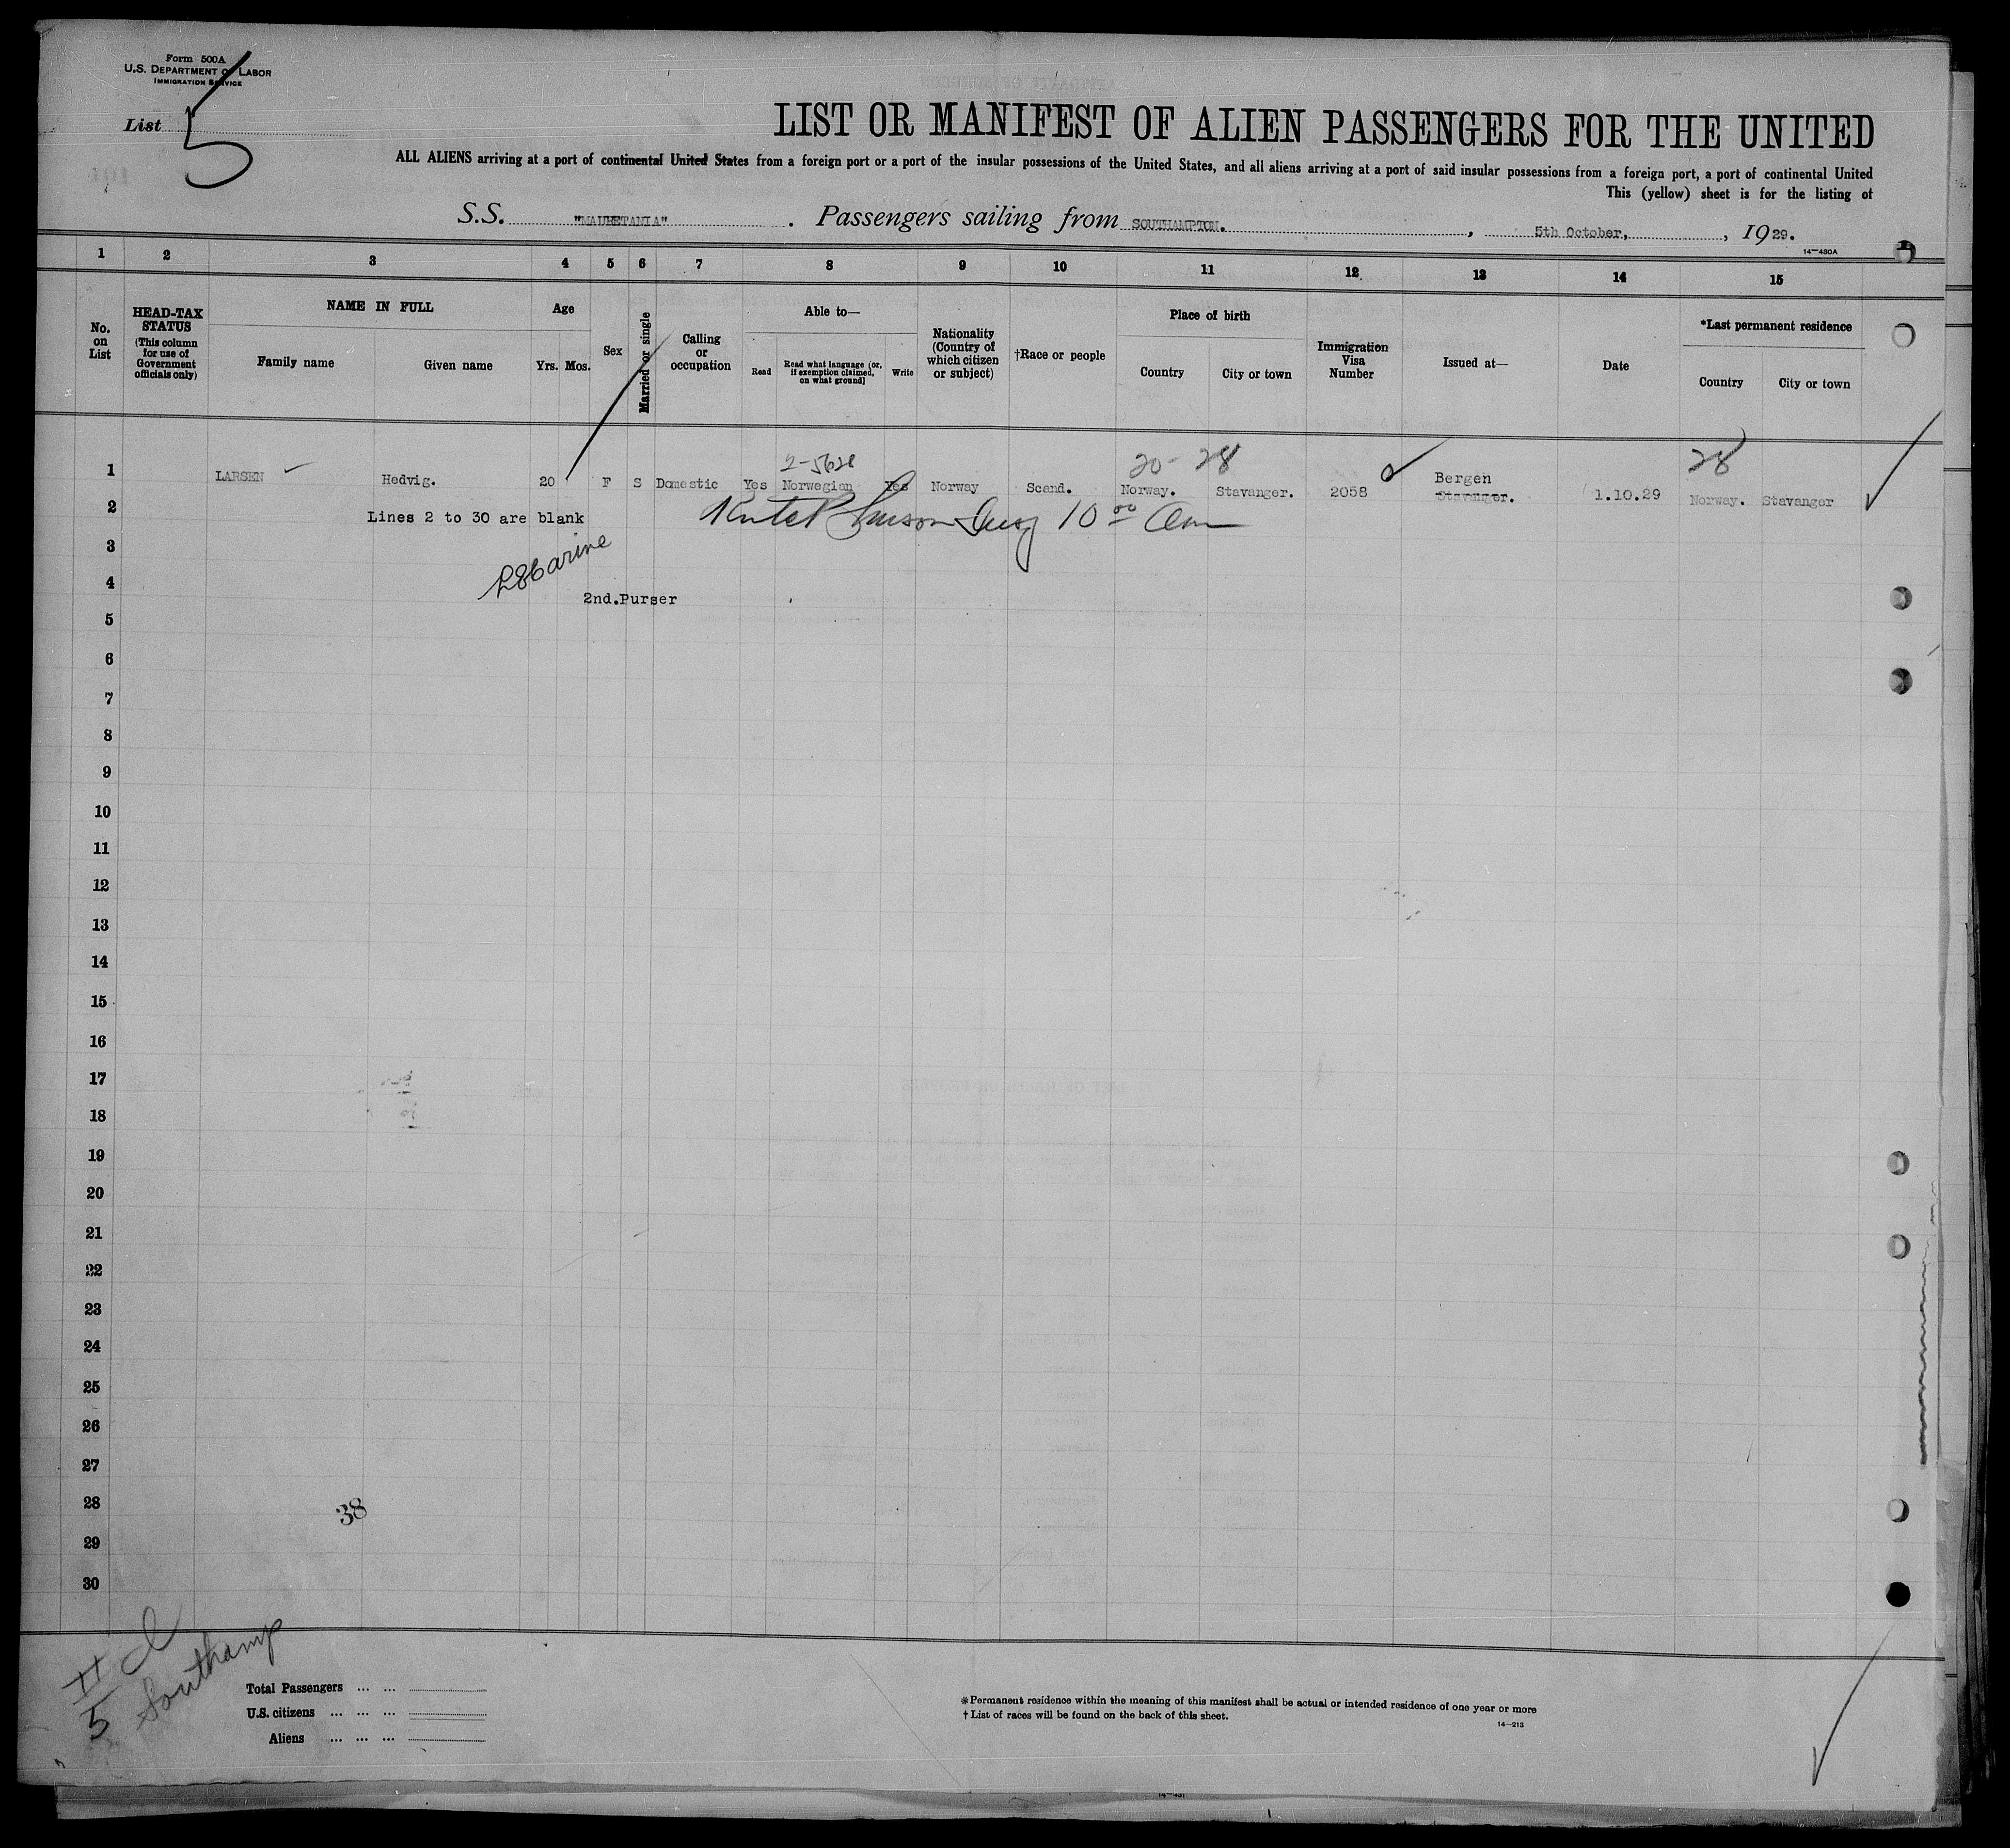 Form 500A
U.S. DEPARTMENT OF LABOR
IMMIGRATION SERVICE
List 5
LIST OR MANIFEST OF ALIEN PASSENGERS FOR THE UNITED
ALL ALIENS arriving at a port of continental United States from a foreign port or a port of the insular possessions of the United States, and all aliens arriving at a port of said insular possessions from a foreign port, a port of continental United
This (yellow) sheet is for the listing of
S.S. "MAURETANIA" . Passengers sailing from SOUTHAMPTON. , 5th October, , 1929.
14—430A
1 2 3 4 5 6 7 8 9 10 11 12 13 14 15
No. on List
HEAD-TAX STATUS (This column for use of Government officials only)
NAME IN FULL
Family name
Given name
Age
Yrs. Mos.
Sex
Married or single
Calling or occupation
Able to—
Read
Read what language [or, if exemption claimed, on what ground]
Write
Nationality (Country of which citizen or subject)
†Race or people
Place of birth
Country
City or town
Immigration Visa Number
Issued at—
Date
*Last permanent residence
Country
City or town
20-28
28
Bergen
1 LARSEN Hedvig. 20 F S Domestic Yes Norwegian Yes Norway Scand. Norway. Stavanger. 2058 Stavanger. 1.10.29 Norway. Stavanger
2 Lines 2 to 30 are blank
10 00 am
3
4
2nd.Purser
5
6
7
8
9
10
11
12
13
14
15
16
17
18
19
20
21
22
23
24
25
26
27
28
38
29
30
II
5 Southamp
Total Passengers ... ...
U.S. citizens ... ... ...
Aliens ... ... ...
*Permanent residence within the meaning of this manifest shall be actual or intended residence of one year or more
† List of races will be found on the back of this sheet.
14—213